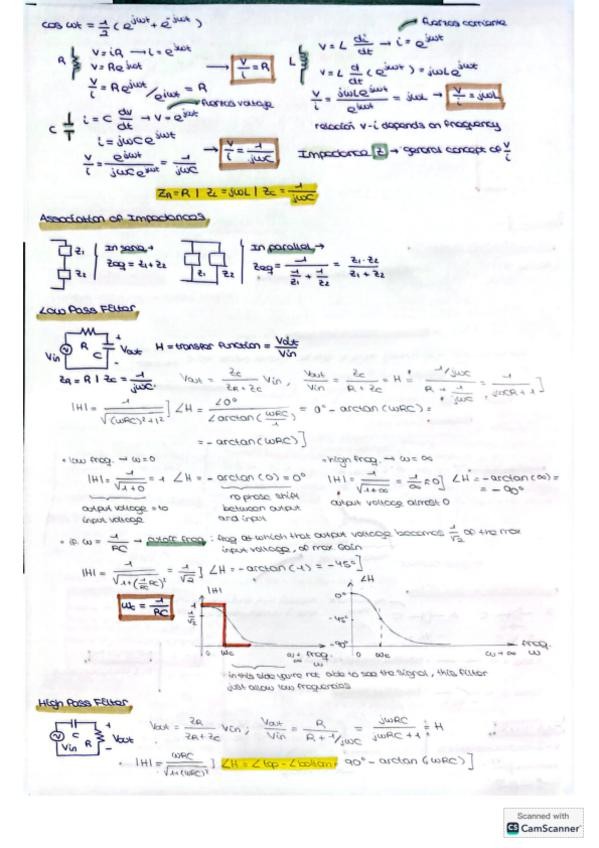 cos ωt = 1/2 (e^jωt + e^-jωt)
R
v = iR → i = e^jωt
v = Re^jωt → v/i = R
v/i = Re^jωt / e^jωt = R
C
i = C dv/dt → v = e^jωt
i = jωC e^jωt
v/i = e^jωt / jωC e^jωt = 1/jωC → v/i = 1/jωC
L
v = L di/dt → i = e^jωt
v = L d/dt (e^jωt) = jωL e^jωt
v/i = jωL e^jωt / e^jωt = jωL → v/i = jωL
relación v-i depends on frequency
Impedance Z → general concept of v/i
ZR = R | ZL = jωL | ZC = 1/jωC
Association of Impedances
Z1
Z2
In serie →
Zeq = Z1 + Z2
Z1 Z2
In parallel →
Zeq = 1 / (1/Z1 + 1/Z2) = Z1 · Z2 / Z1 + Z2
Low Pass Filter
Vin R C + Vout -
H = transfer function = Vout/Vin
ZR = R | ZC = 1/jωC
Vout = ZC / ZR + ZC Vin, Vout/Vin = ZC / R + ZC = H = 1/jωC / R + 1/jωC = 1 / jωCR + 1 ]
|H| = 1 / √(ωRC)² + 1² ] ∠H = ∠0° / ∠arctan(ωRC/1) = 0° - arctan(ωRC) =
= - arctan(ωRC) ]
· low freq. → ω = 0
|H| = 1/√1+0 = 1 ∠H = - arctan(0) = 0°
output voltage = to
input voltage
no phase shift
between output
and input
· high freq. → ω = ∞
|H| = 1/√1+∞ = 1/∞ ≈ 0 ] ∠H = - arctan(∞) =
= - 90°
output voltage almost 0
· if ω = 1/RC → cutoff freq. : freq at which that output voltage becomes 1/√2 of the max
input voltage, of max. gain
|H| = 1 / √1+(1/RC RC)² = 1/√2 ] ∠H = - arctan(1) = - 45° ]
ωc = 1/RC
|H|
1
1/√2
0 ωc ω→∞ freq. ω
∠H
0°
-45°
-90°
0 ωc ω→∞ freq. ω
in this side you're not able to see the signal, this filter
just allow low frequencies
High Pass Filter
Vin C R + Vout -
Vout = ZR / ZR + ZC Vin; Vout/Vin = R / R + 1/jωC = jωRC / jωRC + 1 = H
· |H| = ωRC / √1+(ωRC)² ] ∠H = ∠top - ∠bottom = 90° - arctan(ωRC) ]
Scanned with
CS CamScanner